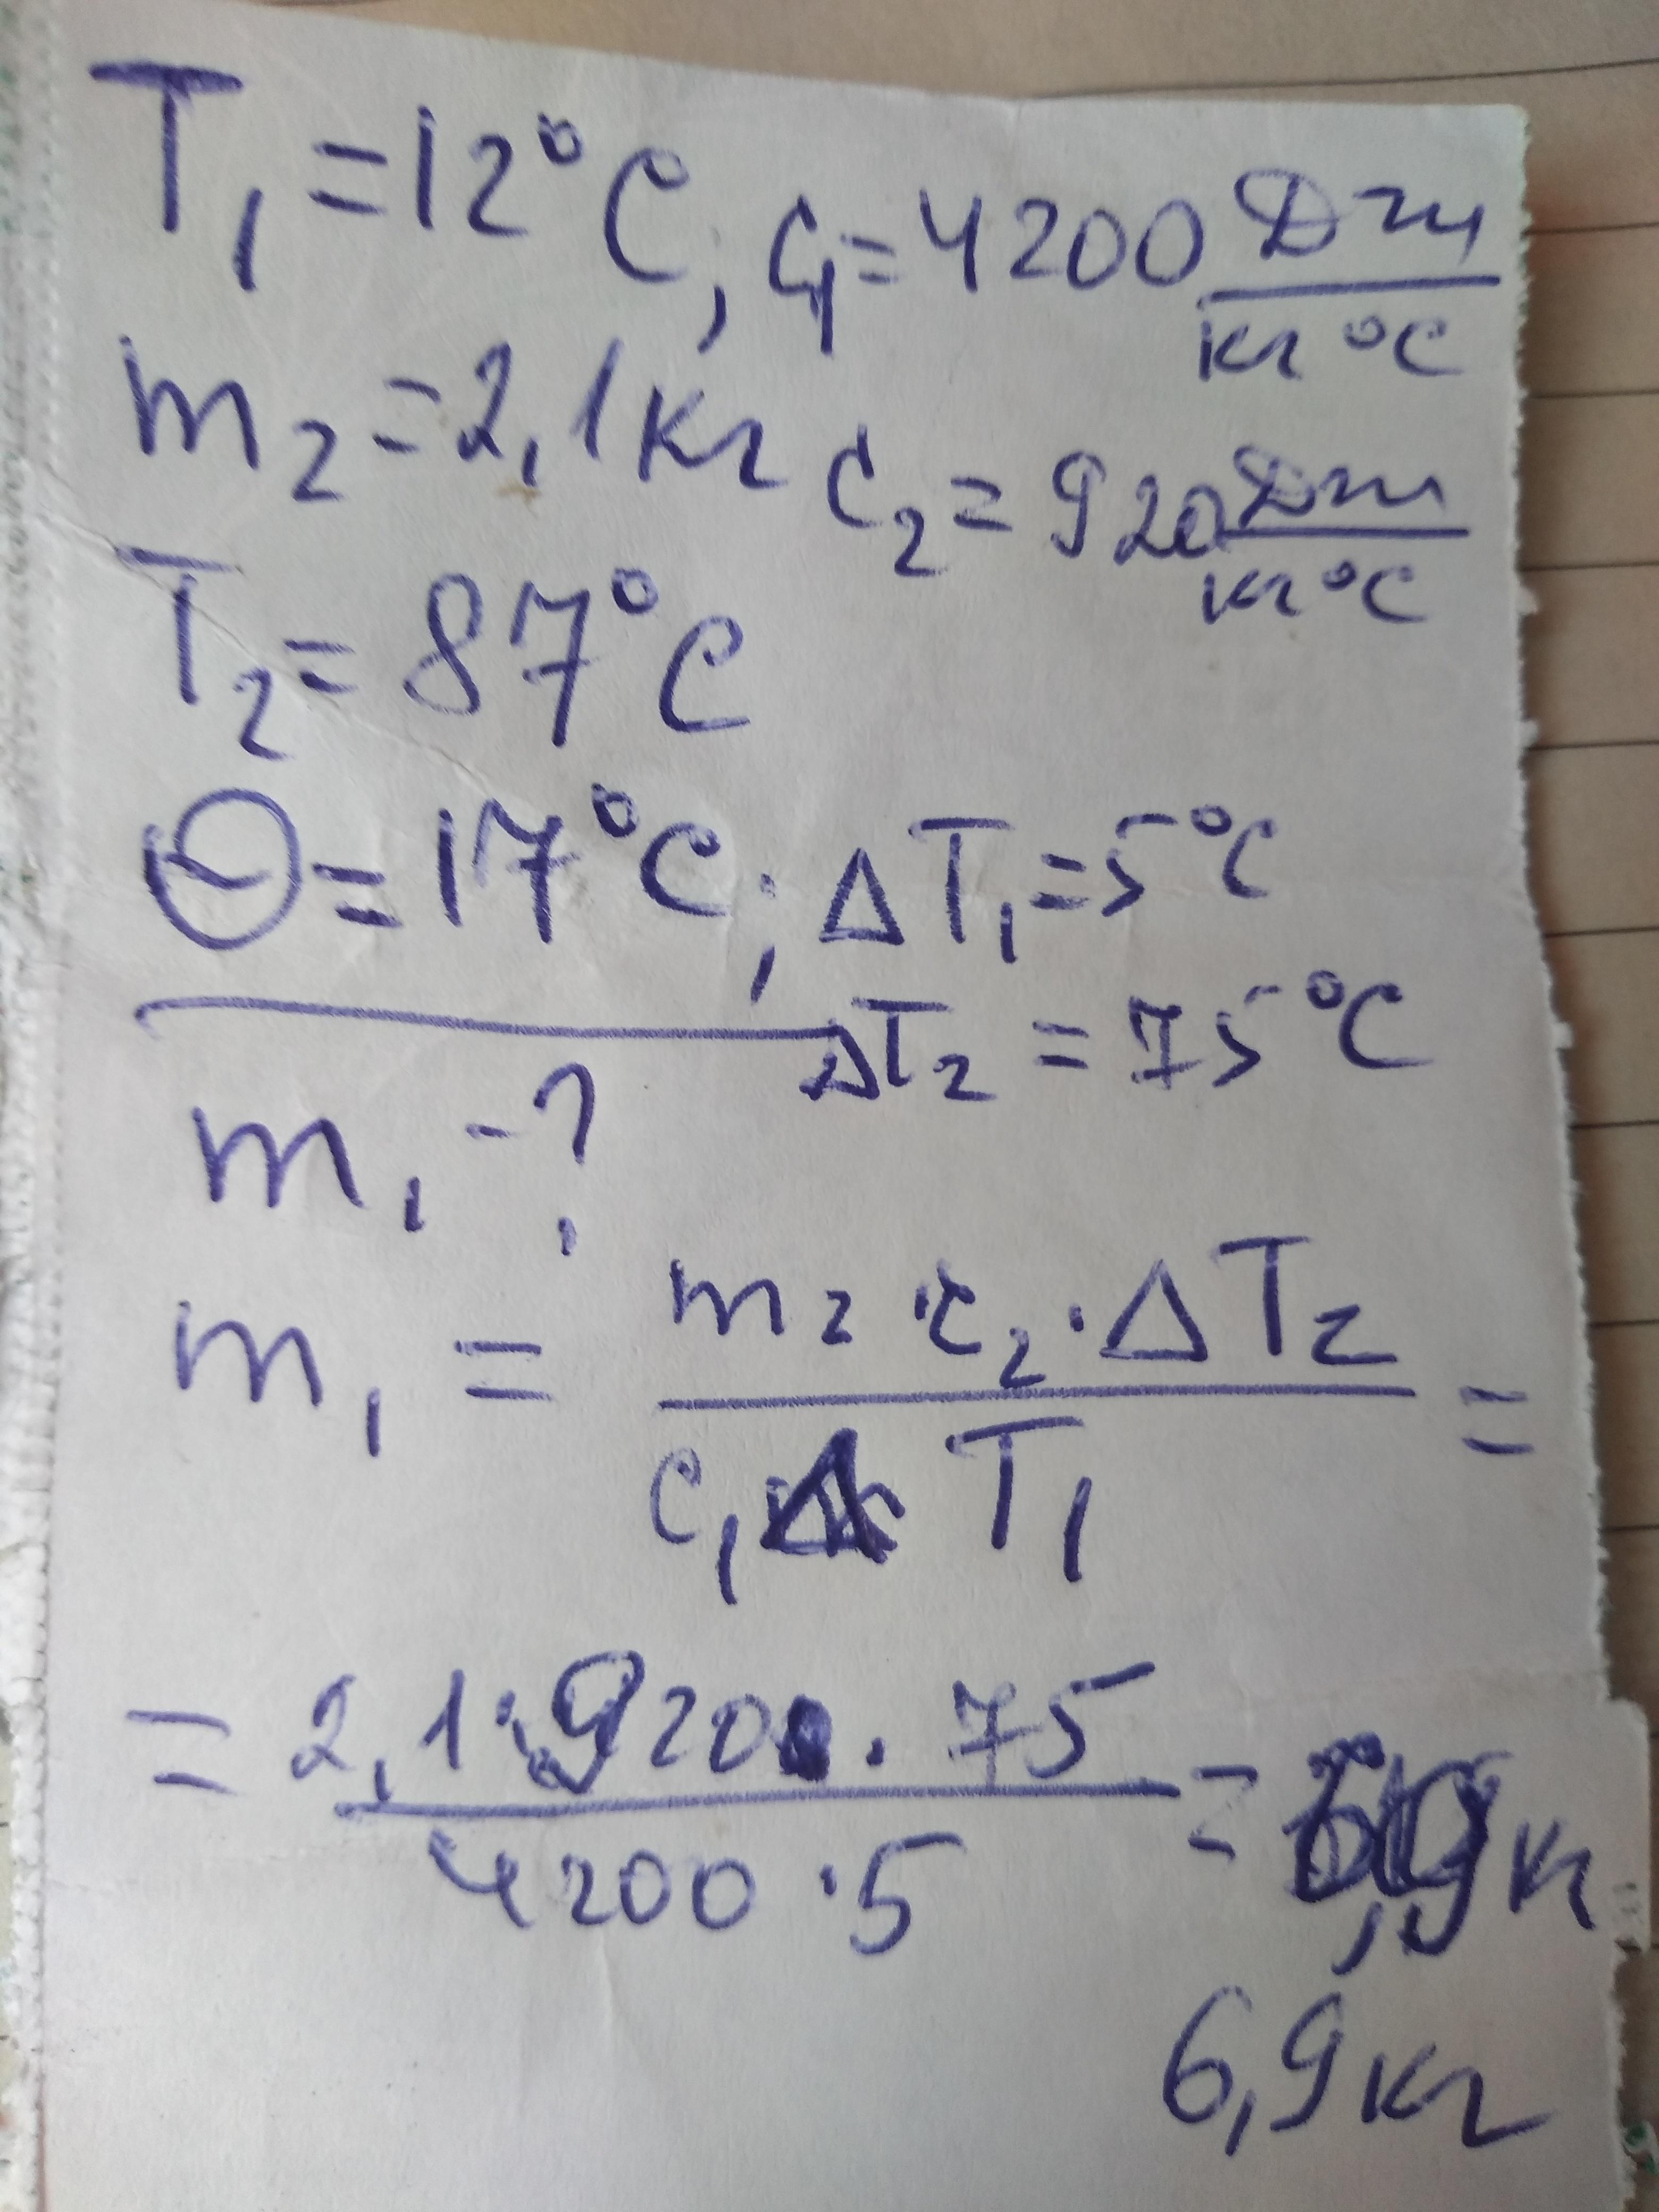 T₁ = 12°C, c₁ = 4200 Дж/кг°C
m₂ = 2,1 кг c₂ = 920 Дж/кг°C
T₂ = 87°C
Θ = 17°C; ΔT₁ = 5°C
ΔT₂ = 75°C
m₁ - ?
m₁ = m₂ · c₂ · ΔT₂ / c₁ Δ T₁ =
= 2,1 · 920 · 75 / 4200 · 5 = 6,9 кг
6,9 кг